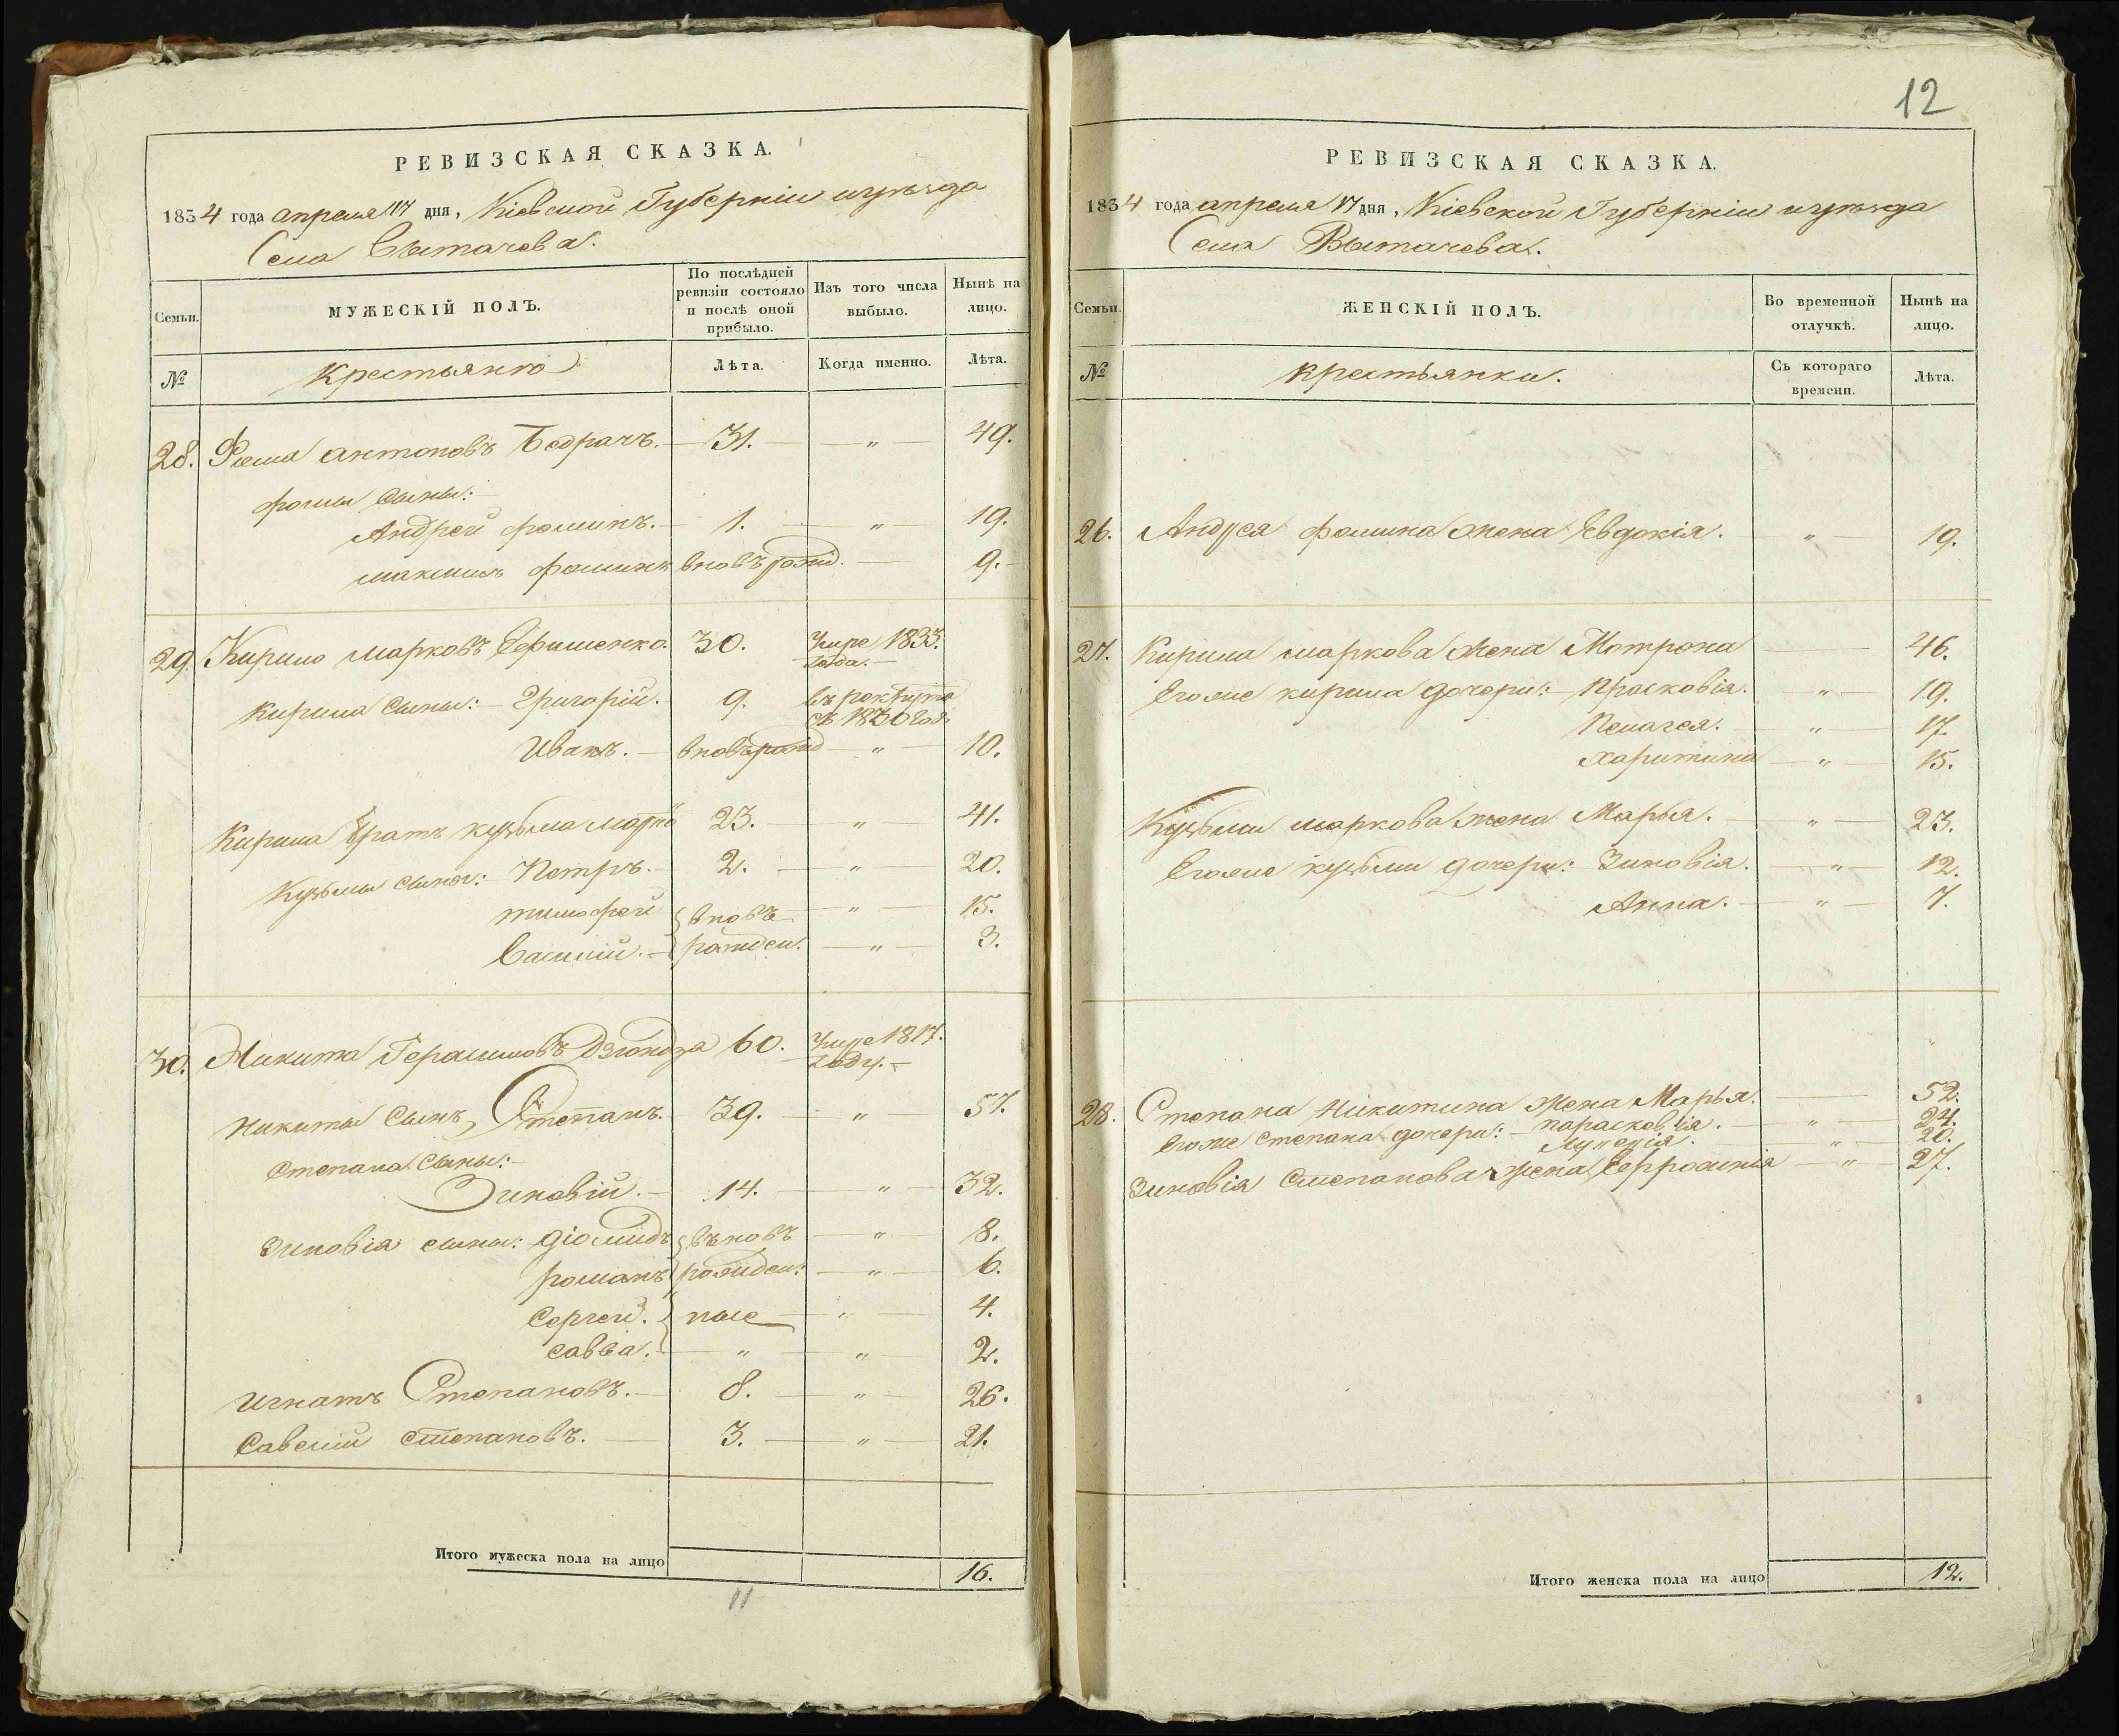 РЕВИЗСКАЯ СКАЗКА.
1834 года апреля 17 дня, Кіевской Губерніи и уѣзда
Села Вытачева.
Семьи. МУЖЕСКІЙ ПОЛЪ. По послѣдней ревизіи состояло и послѣ оной прибыло. Изъ того числа выбыло. Нынѣ на лицо.
№ Крестьяне Лѣта. Когда именно. Лѣта.
28. Фома антоновъ Бедрачъ. 31. " 49.
фомы сыны:
Андрей фоминъ. 1. " 19.
максимъ фоминъ вновь рожд. 9.
29. Кирило марковъ Ефименко. 30. Умре 1833. года.
кирила сыны: Григорій. 9. въ рекрута съ 1830 год.
Иванъ. вновь рожд " 10.
Кирила братъ кузьма марко 23. " 41.
Кузьмы сыны: Петръ. 2. " 20.
тимофей вновь " 15.
Василій. рожден. " 3.
30. Микита Герасимовъ Дзюндза 60. Умре 1817. году.
никиты сынъ, Степанъ. 39. " 57.
степана сыны:
Зиновій. 14. " 32.
зиновія сыны: діомидъ въновь " 8.
романъ рожден: " 6.
сергей. ные " 4.
савва. " " 2.
игнатъ Степановъ. 8. " 26.
Савелий степановъ. 3. " 21.
Итого мужеска пола на лицо 16.
11
12
РЕВИЗСКАЯ СКАЗКА.
1834 года апреля 17 дня, Кіевской Губерніи и уѣзда
Села Вытачева.
Семьи. ЖЕНСКІЙ ПОЛЪ. Во временной отлучкѣ. Нынѣ на лицо.
№ крестьянки. Съ котораго времени. Лѣта.
26. Андрея фомина жена Евдокія. " 19.
27. Кирила маркова жена Мотрона 46.
Егоже кирила дочери: Прасковія. " 19.
Пелагея. " 17.
Харитина " 15.
Кузьмы маркова жена Марья. " 23.
Егоже кузьмы дочери: Зиновія. " 12.
Анна. " 7.
28. Степана Никитина жена Марья. 52.
Егоже степана дочери: парасковія. " 24.
" 20.
зиновія степанова жена Ефросинія " 27.
Итого женска пола на лицо 12.